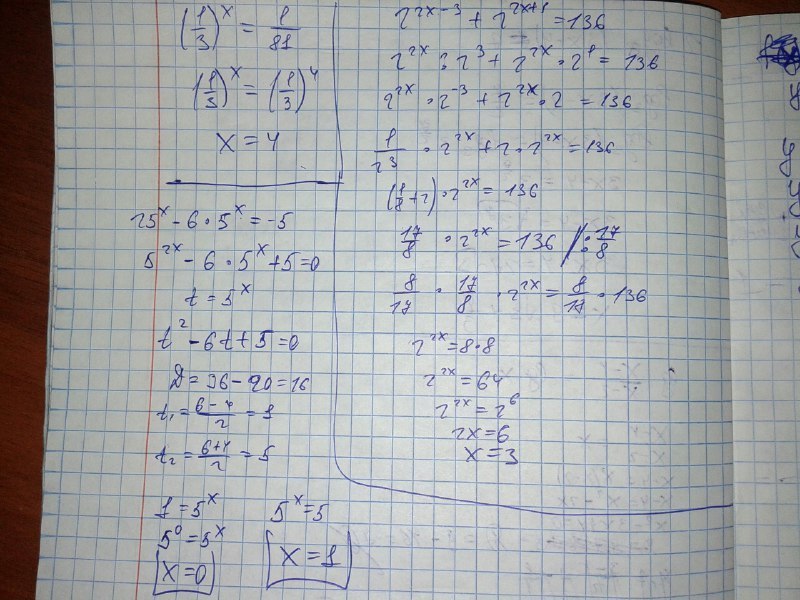 (1/3)^x = 1/81
(1/3)^x = (1/3)^4
x = 4
25^x - 6 · 5^x = -5
5^2x - 6 · 5^x + 5 = 0
t = 5^x
t^2 - 6t + 5 = 0
D = 36 - 20 = 16
t₁ = (6-4)/2 = 1
t₂ = (6+4)/2 = 5
1 = 5^x
5^0 = 5^x
x = 0
5^x = 5
x = 1
2^2x-3 + 2^2x+1 = 136
2^2x : 2^3 + 2^2x · 2^1 = 136
2^2x · 2^-3 + 2^2x · 2 = 136
1/2^3 · 2^2x + 2 · 2^2x = 136
(1/8 + 2) · 2^2x = 136
17/8 · 2^2x = 136 / : 17/8
8/17 · 17/8 · 2^2x = 8/17 · 136
2^2x = 8 · 8
2^2x = 64
2^2x = 2^6
2x = 6
x = 3